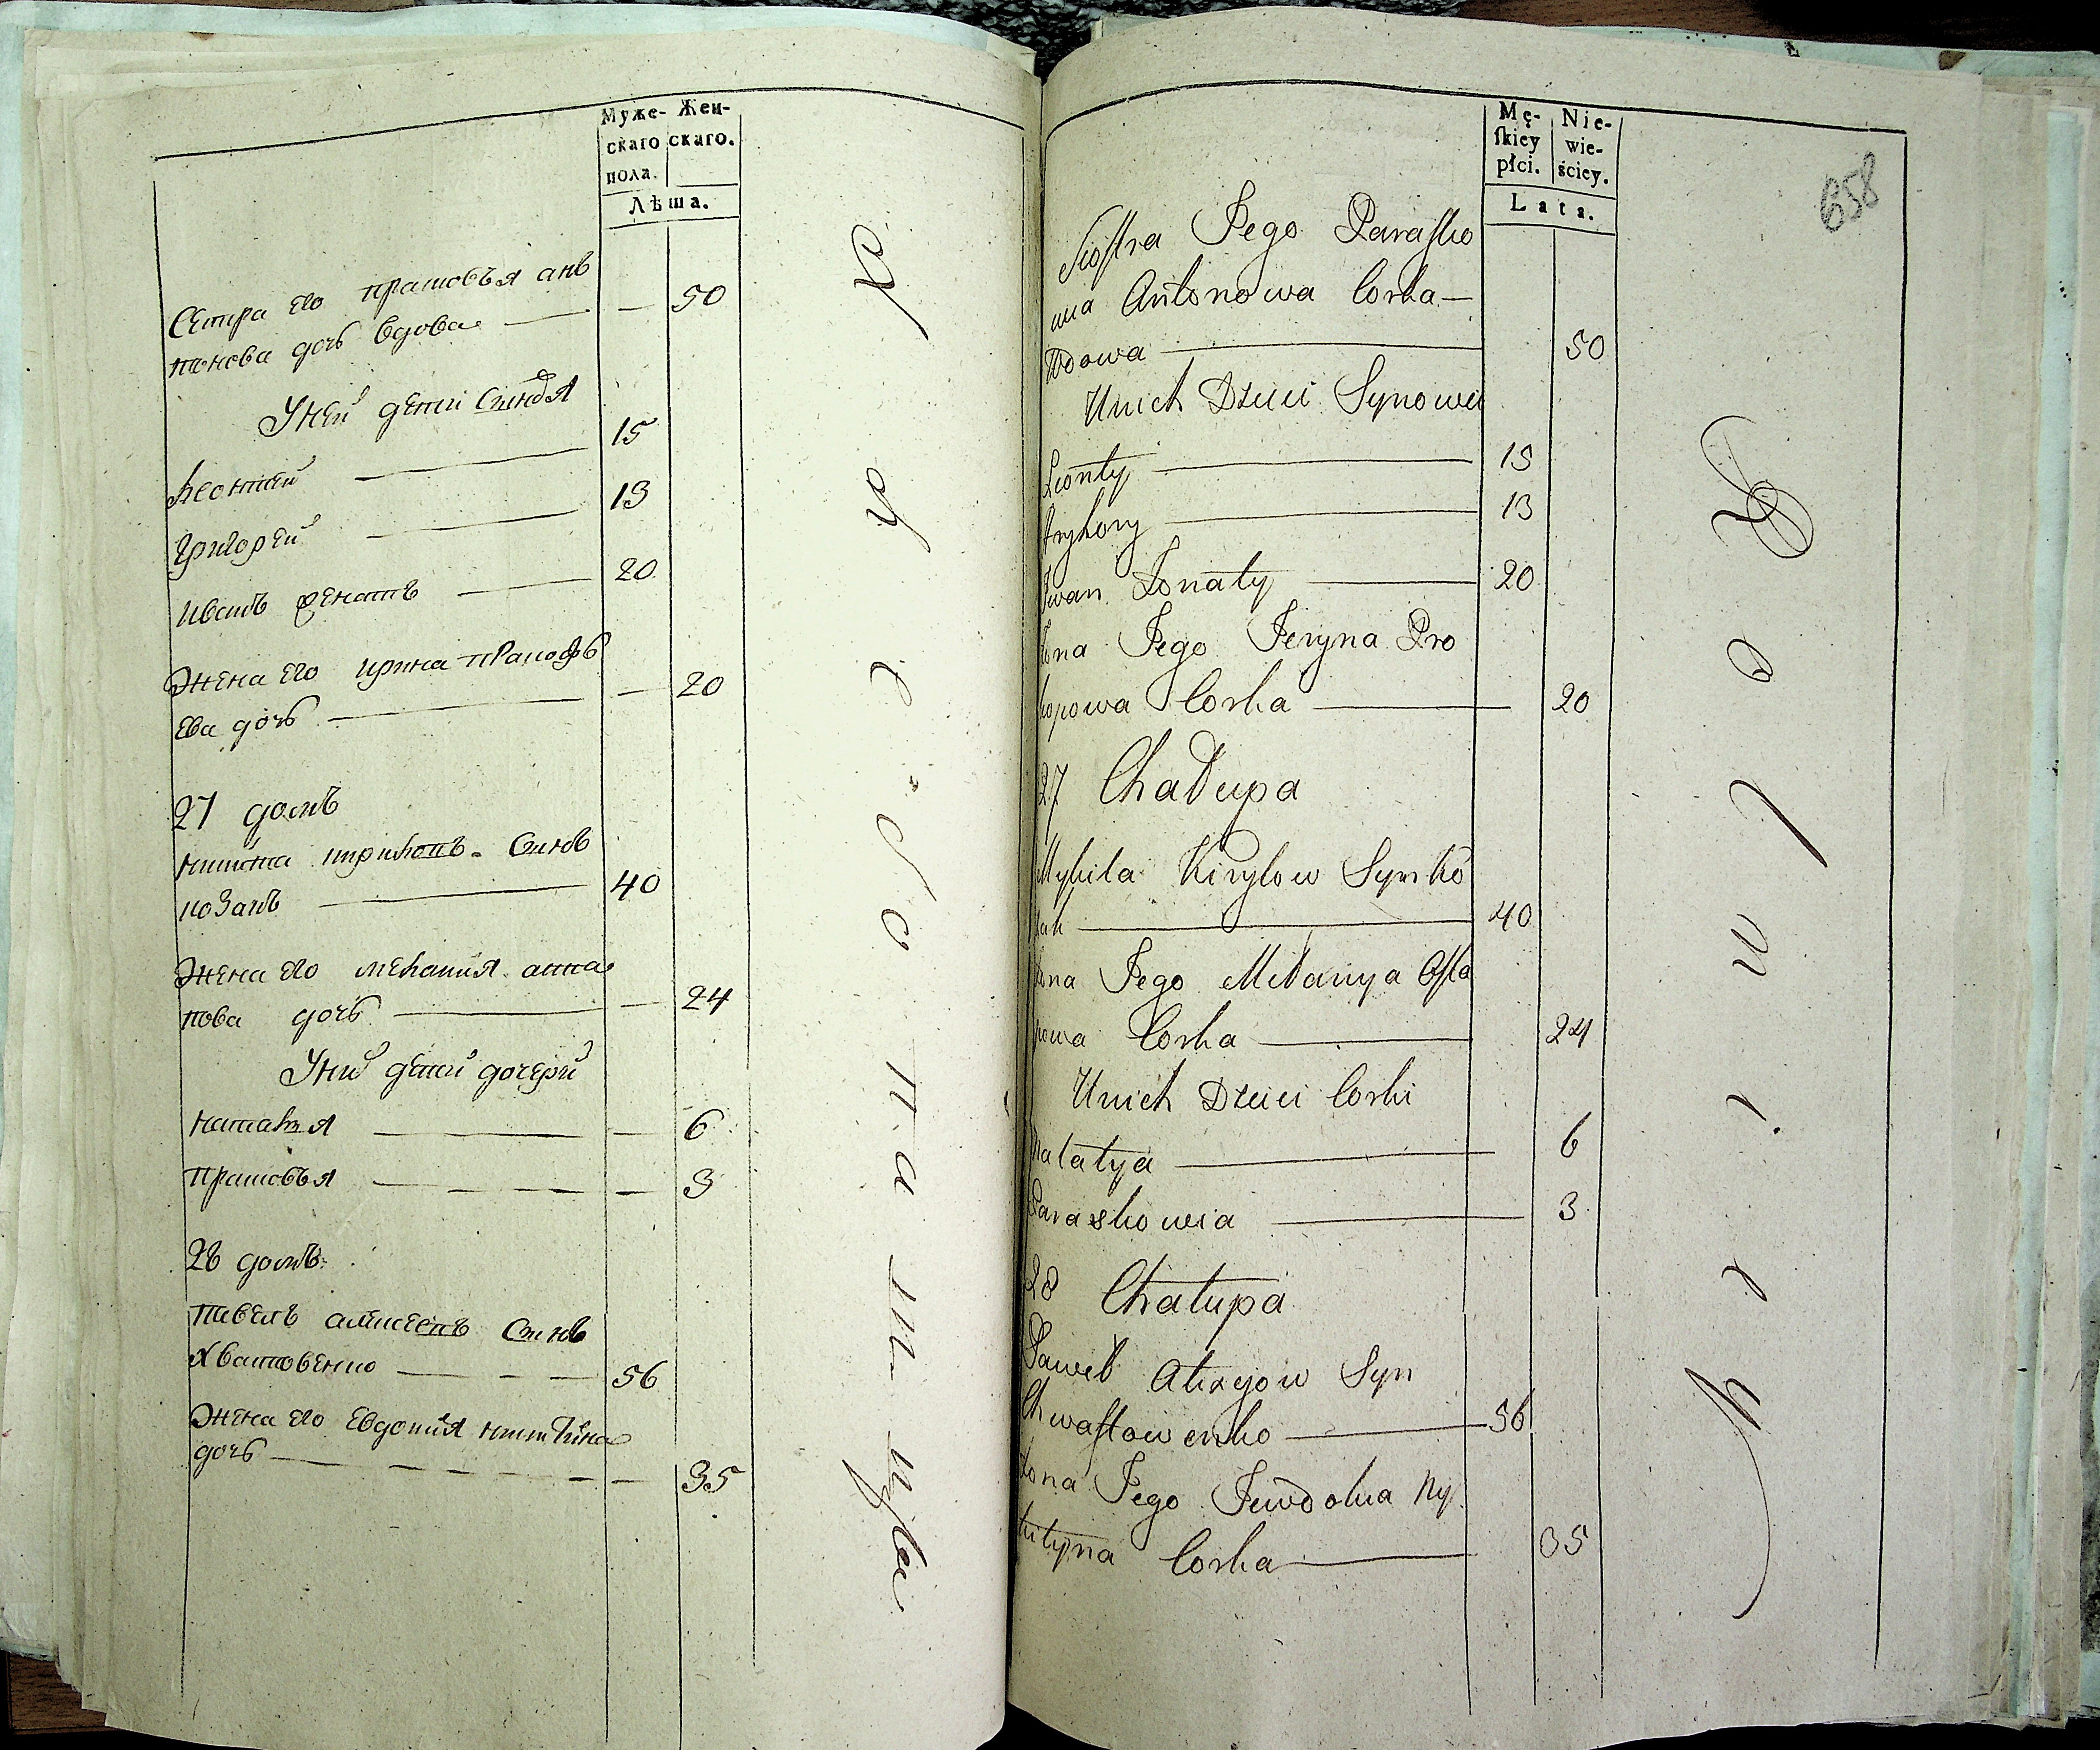 Муже-
скаго
пола.
Жен-
скаго.
Лѣта.
Сестра его прасковья ан
тонова дочь вдова — — 50
У неи дети
леонтий — 15
григорей — 13
иванъ женатъ — 20
Жена его ирина прокофь
ева дочь — — 20
27 домъ
никита
козакъ — 40
Жена его мелания
пова дочь — — 24
У них дети дочери
наталия — — 6
прасковья — — 3
28 домъ
павелъ алексеевъ сынъ
хвастовенко — 56
Жена его евдокия никитина
дочь — — 35
Mę-
skiey
płci.
Nie-
wie-
ściey.
Lata.
658
Siostra Jego Parasko
wia Antonowa Corka —
Wdowa — 50
Unich Dzieci Synowie
Leonty — 15
Aryhory — 13
Jwan Zonaty — 20
Zona Jego Jeryna Pro
kopowa Corka — 20
27 Chałupa
Mykita Kiryłow Syn Ko
zak — 40
Zona Jego Mełanya Osta
powa Corka — 24
Unich Dzieci Corki
Natalya — 6
Paraskowia — 3
28 Chałupa
Paweł Alexejow Syn
Chwastowenko — 56
Zona Jego Jewdokia Ny
kityna Corka — 35